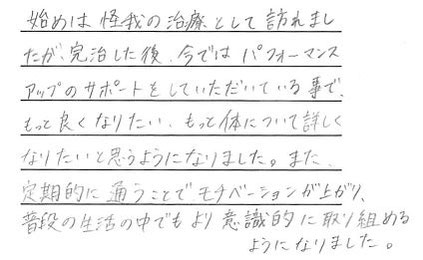 始めは怪我の治療として訪れまし
たが、完治した後、今ではパフォーマンス
アップのサポートをしていただいている事で、
もっと良くなりたい、もっと体について詳しく
なりたいと思うようになりました。また、
定期的に通うことでモチベーションが上がり、
普段の生活の中でもより意識的に取り組める
ようになりました。